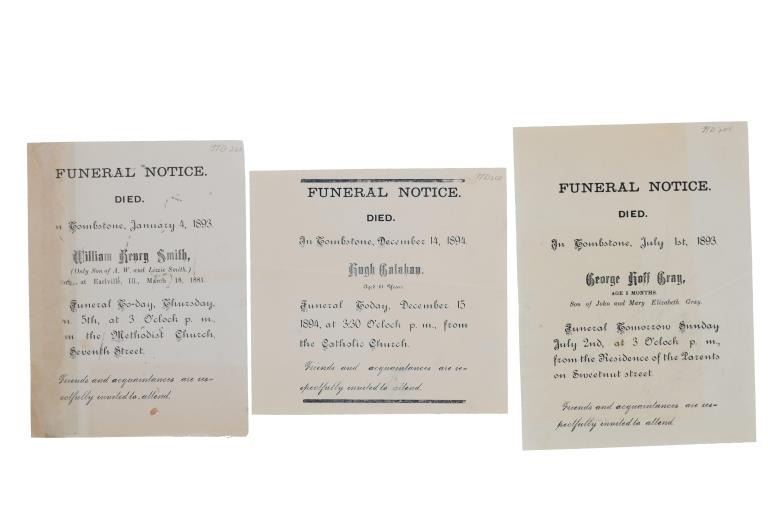 FUNERAL NOTICE.
DIED.
In Tombstone, January 4, 1893.
William Henry Smith,
(Only Son of A. W. and Lizzie Smith.)
at Earlville, Ill., March 18, 1881.
Funeral To-day, Thursday,
5th, at 3 O'cloch p. m.,
the Methodist Church,
Seventh Street.
Friends and acquaintances are res-
ectfully invited to attend.
FUNERAL NOTICE.
DIED.
In Tombstone, December 14, 1894.
Hugh Calahan.
Aged Years.
Funeral Today, December 15
1894, at 3:30 O'cloch p. m., from
the Catholic Church.
Friends and acquaintances are re-
spectfully invited to attend.
FUNERAL NOTICE.
DIED.
In Tombstone, July 1st, 1893.
George Hoff Gray,
AGE 5 MONTHS.
Son of John and Mary Elizabeth Gray.
Funeral Tomorrow Sunday
July 2nd, at 3 O'cloch p. m.,
from the Residence of the Parents
on Sweetnut street.
Friends and acquaintances are res-
pectfully invited to attend.